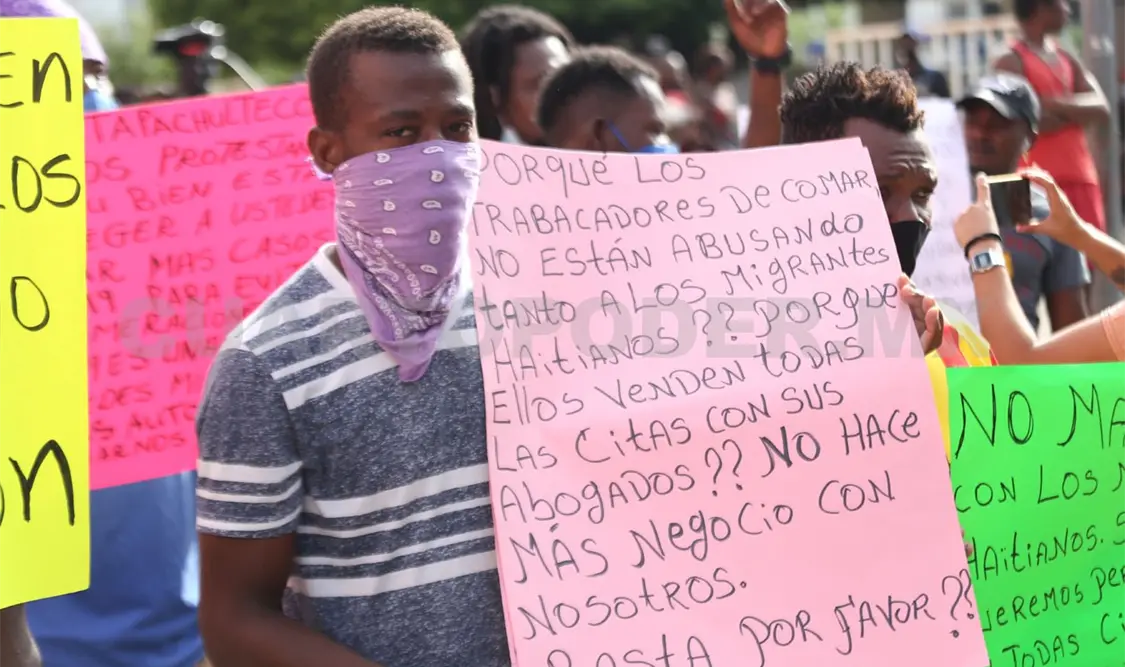 en
os
o
on
TAPACHULTECO
OS PROTESTAN
BIEN ESTA
EGER A USTEDE
AR MAS CASOS
19 PARA EVI
MERACION
DES M
AUTO
NOS
PORQUÉ LOS
TRABACADORES DE COMAR,
NO EStÁN ABUSANdO
tANTO A LOS MigRANtes
HAitiANOS?? PORQUE
Ellos VENDEN todAS
LAS CitAS CON SUS
AbogADOS?? NO HACE
MÁS NegoCio CON
NOSOtROS.
BAsta POR fAVOR??
NO MA
CON LOS
HAitiANOS. S
QUEREMOS PER
TODAS Ci
CUARTOPODER.M